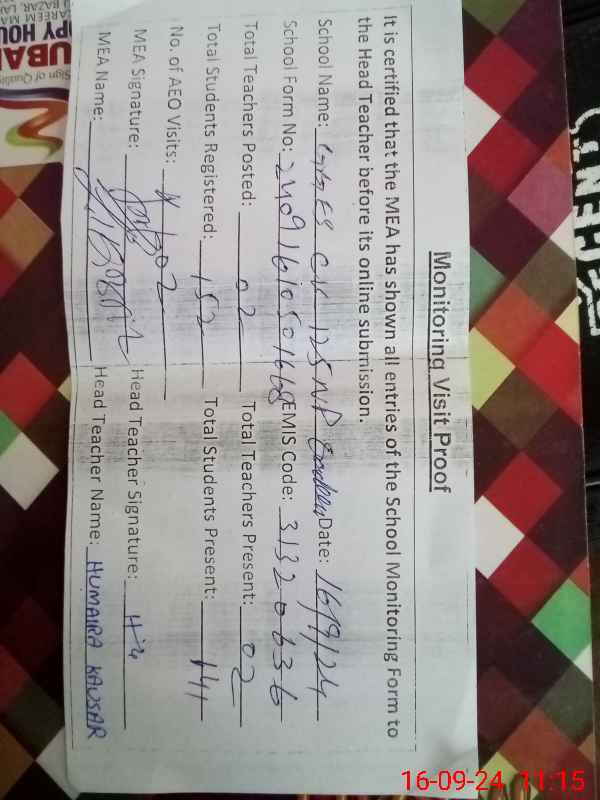 Monitoring Visit Proof
It is certified that the MEA has shown all entries of the School Monitoring Form to
the Head Teacher before its online submission.
School Name: CK 125 NP Date: 16/9/24
School Form No: EMIS Code: 31320636
Total Teachers Posted: 02 Total Teachers Present: 02
Total Students Registered: 152 Total Students Present: 141
No. of AEO Visits: 02
MEA Signature: Head Teacher Signature:
MEA Name: Head Teacher Name: HUMAIRA KAUSAR
16-09-24 11:15